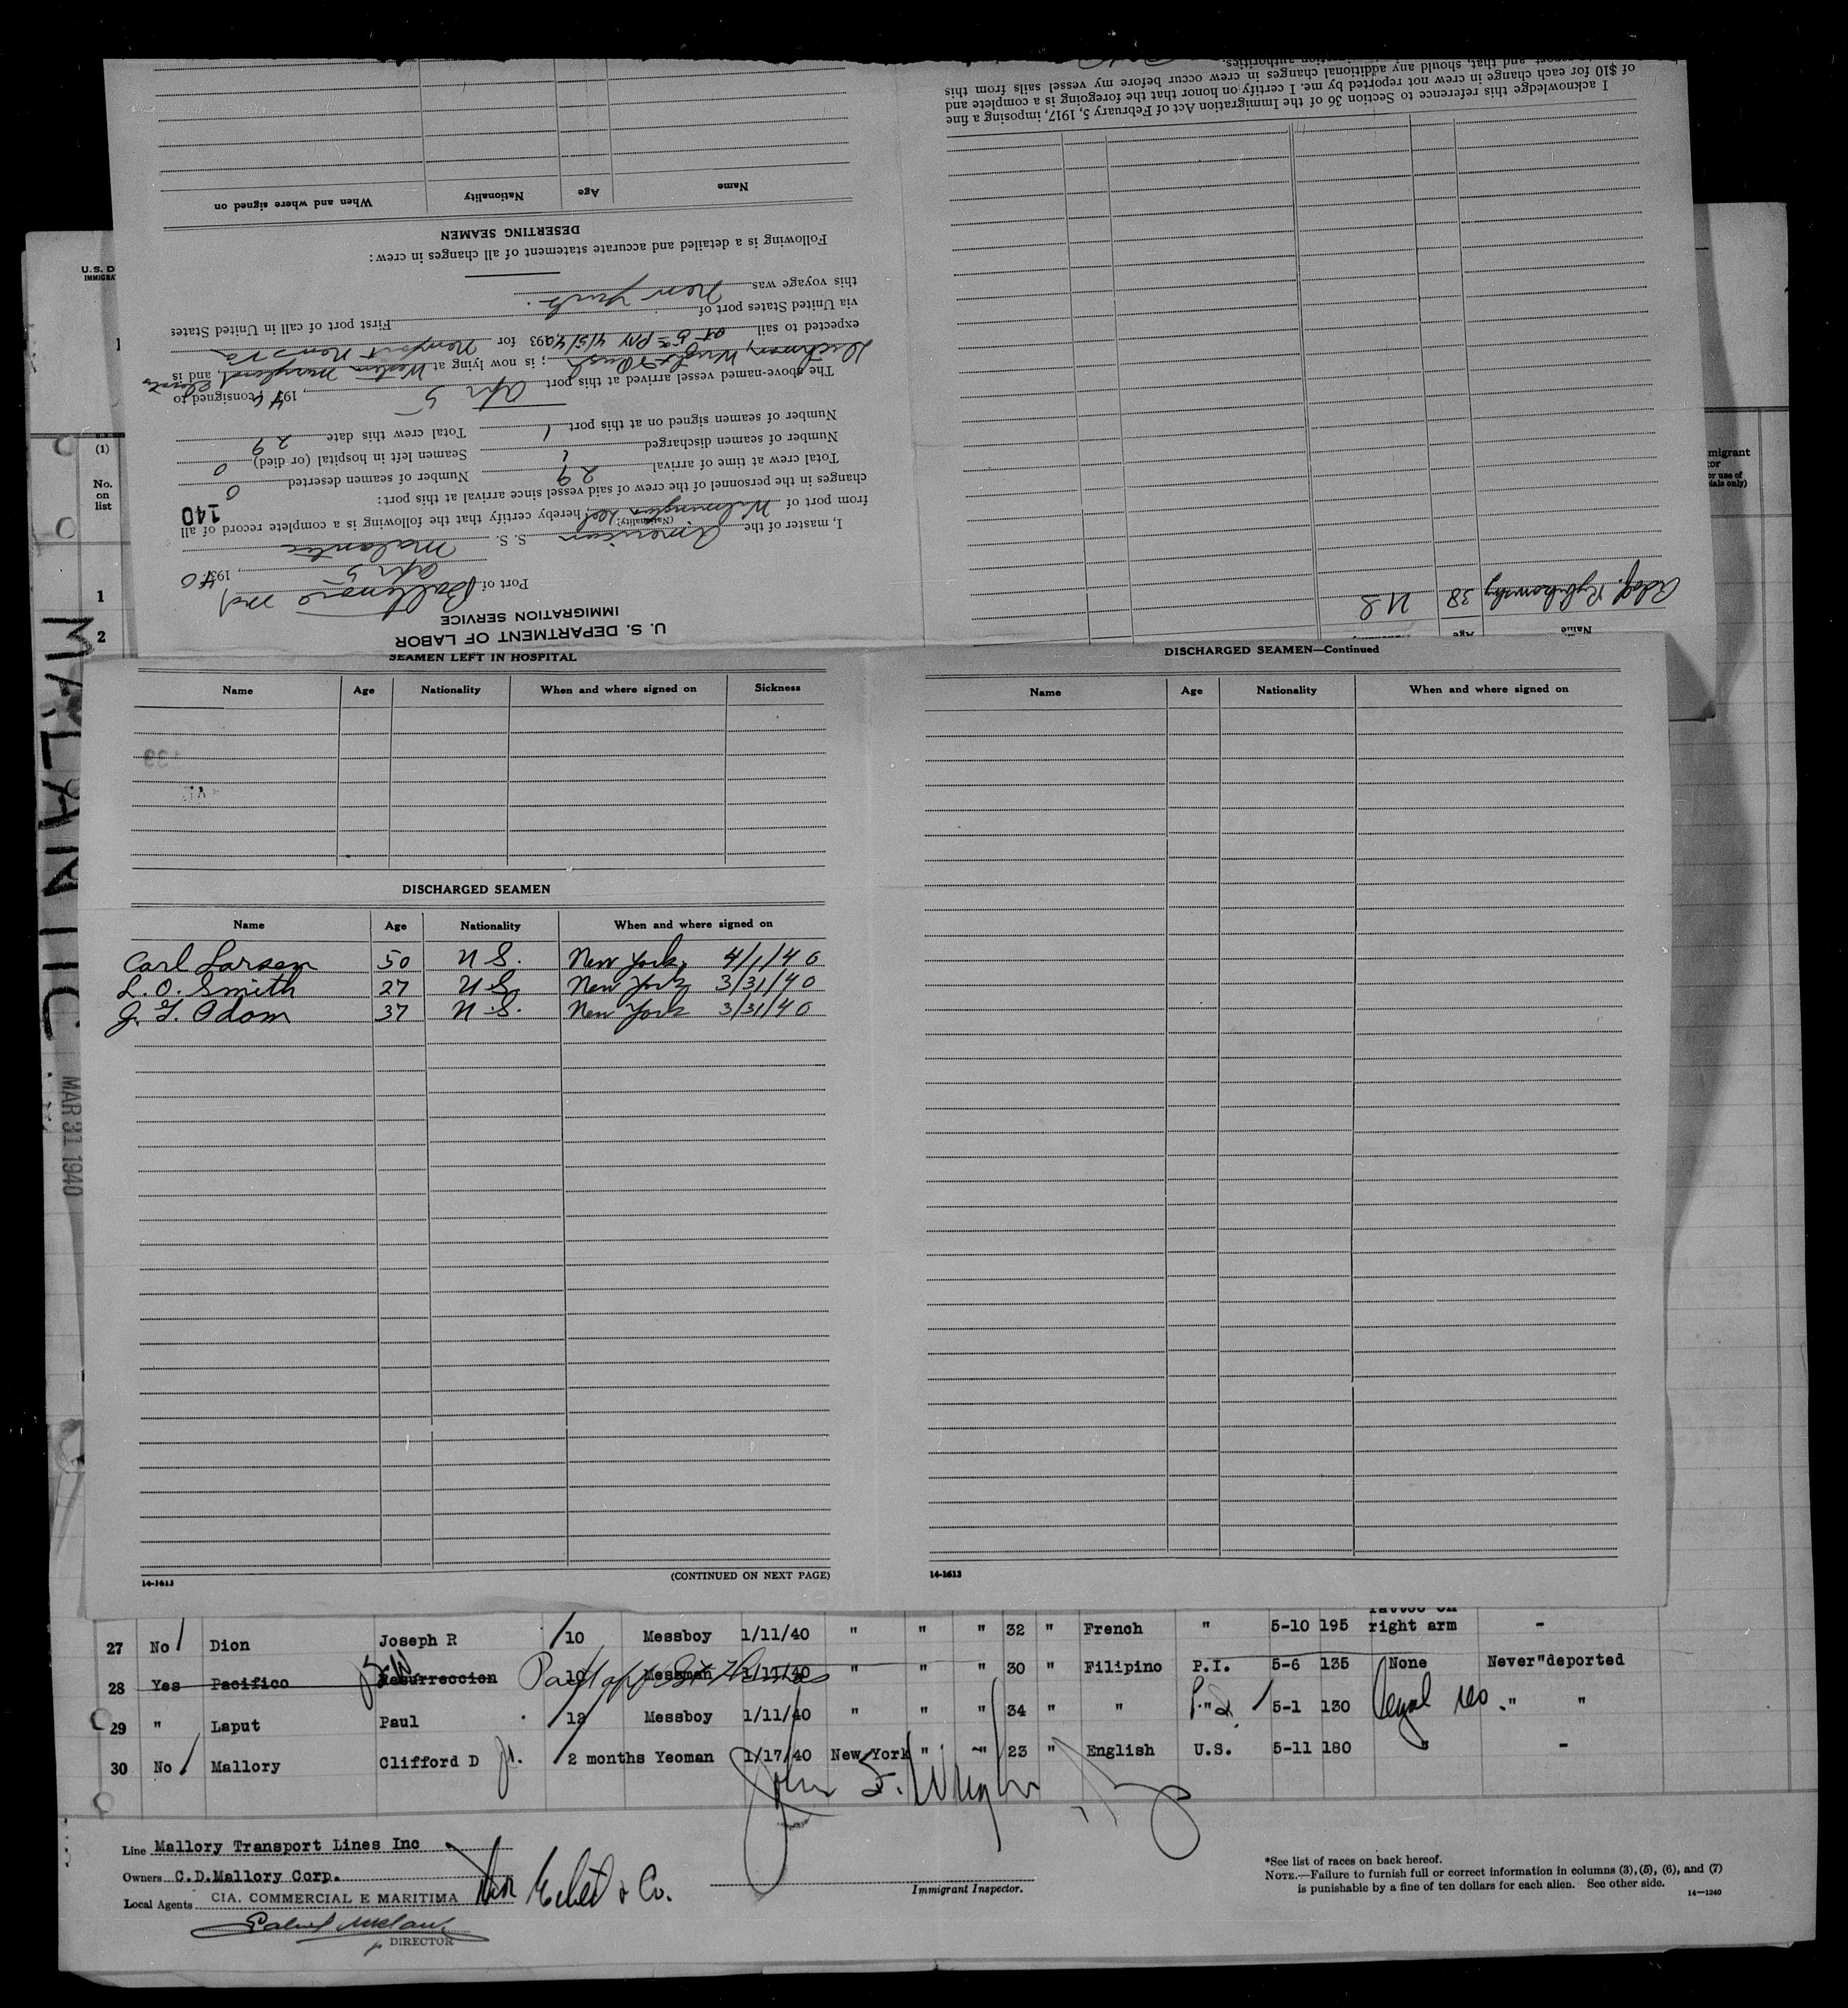 I acknowledge this reference to Section 36 of the Immigration Act of February 5, 1917, imposing a fine
of $10 for each change in crew not reported by me. I certify on honor that the foregoing is a complete and
and that, should any additional changes in crew occur before my vessel sails from this
authorities.
U. S. DEPARTMENT OF LABOR
IMMIGRATION SERVICE
Port of Baltimore Md
Apr 5, 1940
I, master of the American S. S. Malantic
(Nationality)
from port of Wilmington Del, hereby certify that the following is a complete record of all
140
changes in the personnel of the crew of said vessel since arrival at this port:
Total crew at time of arrival 29 Number of seamen deserted 0
Number of seamen discharged 1 Seamen left in hospital (or died) 0
Number of seamen signed on at this port 1 Total crew this date 29
The above-named vessel arrived at this port Apr 5, 1940; consigned to
; is now lying at Western Maryland, and is
expected to sail at 5 PM 4/5/40 193 for Newport News Va
via United States port of First port of call in United States
this voyage was New York.
Following is a detailed and accurate statement of all changes in crew:
DESERTING SEAMEN
Name Age Nationality When and where signed on
Name Age
38 U S
U.S. D
IMMIGRA
(1)
No.
on
list
1
2
MALANTIC
MAR 31 1940
migrant
or
or use of
ials only)
SEAMEN LEFT IN HOSPITAL
Name Age Nationality When and where signed on Sickness
DISCHARGED SEAMEN
Name Age Nationality When and where signed on
Carl Larsen 50 U S. New York, 4/1/40
L. O. Smith 27 U S. New York 3/31/40
J. G. Adom 37 U. S. New York 3/31/40
14-1613 (CONTINUED ON NEXT PAGE)
DISCHARGED SEAMEN—Continued
Name Age Nationality When and where signed on
14-1613
Tattoo on
27 No Dion Joseph R 10 Messboy 1/11/40 " " " 32 " French " 5-10 195 right arm -
28 Yes Pacifico Resurreccion 10 Messman 1/11/40 " " " 30 " Filipino P.I. 5-6 135 None Never"deported
29 " Laput Paul 12 Messboy 1/11/40 " " " 34 " " P.I. 5-1 130 Legal res " "
30 No Mallory Clifford D Jr. 2 months Yeoman 1/17/40 New York " " 23 " English U.S. 5-11 180 " -
Line Mallory Transport Lines Inc
Owners C.D.Mallory Corp.
Local Agents CIA. COMMERCIAL E MARITIMA
DIRECTOR
Immigrant Inspector.
*See list of races on back hereof.
NOTE.—Failure to furnish full or correct information in columns (3), (5), (6), and (7)
is punishable by a fine of ten dollars for each alien. See other side.
14—1240